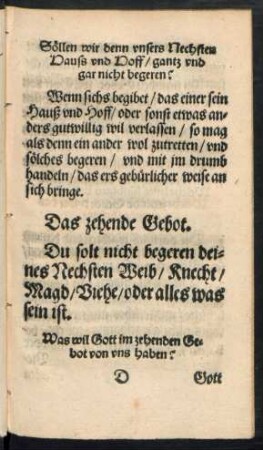 Söllen wir denn vnsers Nechsten
Hauß vnd Hoff / gantz vnd
gar nicht begeren?
Wenn sichs begibet / das einer sein
Hauß vnd Hoff / oder sonst etwas an-
ders gutwillig wil verlassen / so mag
als denn ein ander wol zutretten / vnd
sölches begeren / vnd mit jm drumb
handeln / das ers gebürlicher weise an
sich bringe.
Das zehende Gebot.
Du solt nicht begeren dei-
nes Nechsten Weib / Knecht /
Magd / Viehe / oder alles was
sein ist.
Was wil Gott im zehenden Ge-
bot von vns haben?
D Gott